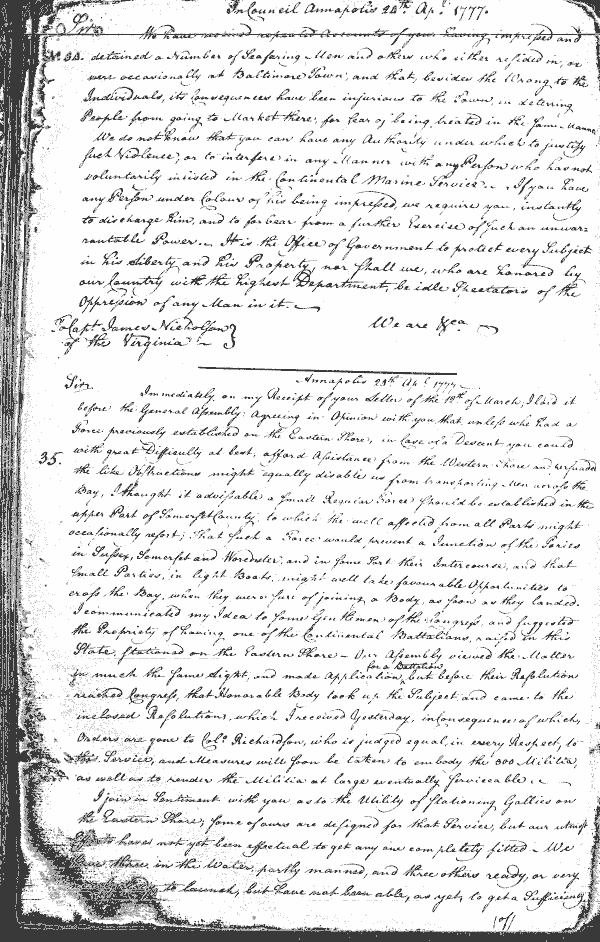 In Council Annapolis 24th Apl. 1777.
Sir
We have received repeated Accounts of your having impressed and
No. 34. detained a Number of Seafaring Men and others who either resided in, or
were occasionally at Baltimore Town, and that, besides the Wrong to the
Individuals, its Consequences have been injurious to the Town, in deterring
People from going to Market there, for fear of being treated in the same Manner
We do not know that you can have any Authority under which to justify
such Violence, or to interfere in any Manner with any Person who has not
voluntarily inlisted in the Continental Marine Service. If you have
any Person under Colour of his being impressed, we require you, instantly
to discharge him, and to forbear from a further Exercise of such an unwar-
rantable Power. It is the Office of Government to protect every Subject
in his Liberty and his Property, nor shall we, who are honored by
our Country with the highest Department, be idle Spectators of the
Oppression of any Man in it.
We are &ca
To Capt James Nicholson
of the Virginia
Annapolis 24th Apl. 1777
Sir.
Immediately, on my Receipt of your Letter of the 19th of March, I laid it
before the General Assembly: Agreeing in Opinion with you that unless we had a
Force previously established on the Eastern Shore, in Case of a Descent you could
35. with great Difficulty at best, afford Assistance from the Western Shore and
the like Obstructions might equally disable us from transporting Men across the
Bay, I thought it advisable a small Regular Force should be established in the
upper Part of Somerset County, to which the well affected from all Parts might
occasionally resort; That such a Force would prevent a Junction of the Tories
in Sussex, Somerset and Worcester, and in some Sort their Intercourse, and that
small Parties, in light Boats, might well take favourable Opportunities to
cross the Bay, when they were sure of joining a Body, as soon as they landed.
I communicated my Idea to some Gentlemen of the Congress, and suggested
the Propriety of having one of the Continental Battalions, raised in this
State, stationed on the Eastern Shore - Our Assembly viewed the Matter
for a Battalion
in much the same Light, and made Application, but before their Resolution
reached Congress, that Honorable Body took up the Subject and came to the
inclosed Resolutions, which I received Yesterday, in Consequence of which,
Orders are gone to Colo. Richardson, who is judged equal, in every Respect, to
this Service, and Measures will soon be taken to embody the 300 Militia,
as well as to render the Militia at large eventually serviceable.
I join in Sentiment with you as to the Utility of stationing Gallies on
the Eastern Shore; some of ours are designed for that Service, but our utmost
Efforts have not yet been effectual to get any one completely fitted - We
have three in the Water partly manned, and three others ready, or very
to launch, but have not been able, as yet, to get a Sufficiency
of